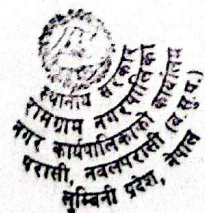 स्थानीय सरकार
रामग्राम नगरपालिका
नगर कार्यपालिकाको कार्यालय
परासी नवलपरासी (ब.सु.प.)
लुम्बिनी प्रदेश, नेपाल